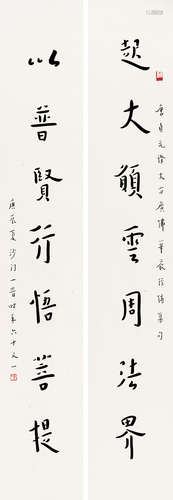 起大願雲周法界
唐貞元譯大方廣佛華嚴經偈頌集句
以普賢行悟菩提
庚辰夏沙門一音時年六十又一